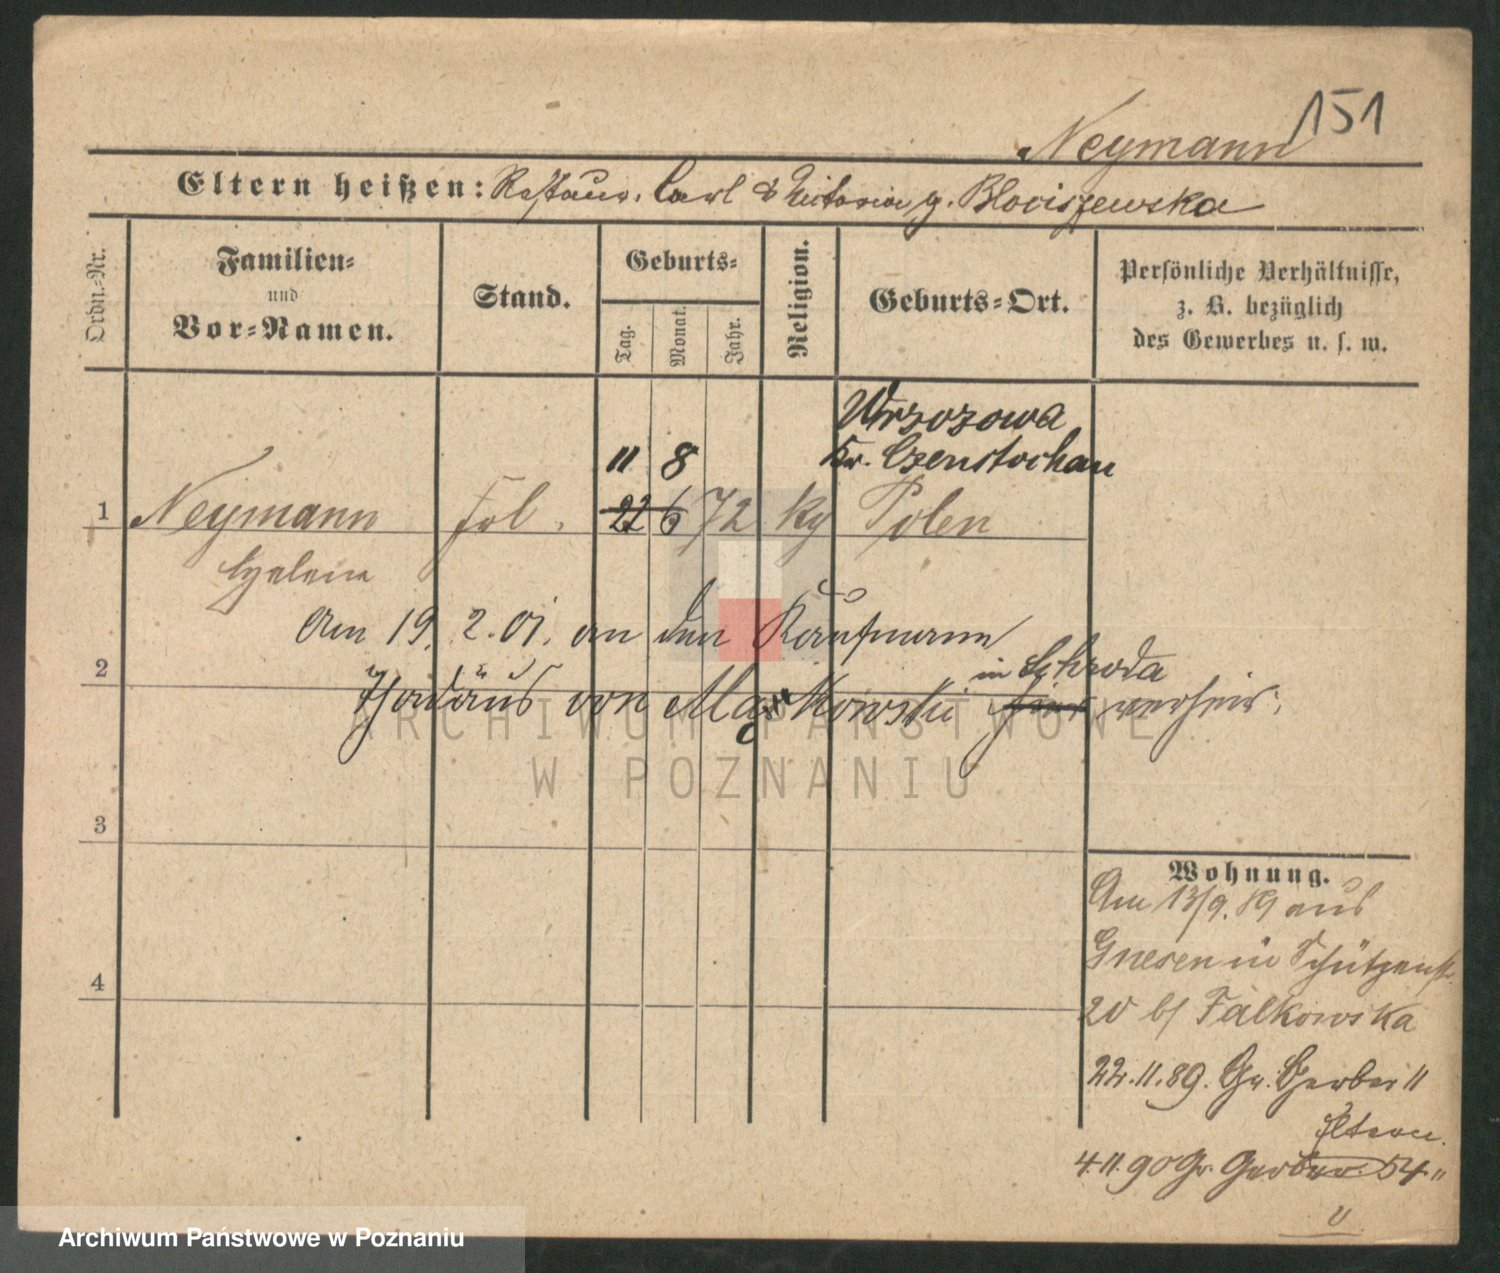 151
Neymann
Eltern heißen: Restaur. Carl & Victoria g. Blociszewska
Ordn.-Nr.
Familien-
und
Vor-Namen.
Stand.
Geburts-
Tag.
Monat.
Jahr.
Religion.
Geburts-Ort.
Persönliche Verhältnisse,
z. B. bezüglich
des Gewerbes u. s. w.
Wrzozowa
11 8 Kr. Czenstochau
1 Neymann Frl. 22 6 72 kg Polen
Helene
Am 19. 2. 01. an den Kaufmann
2
in Schroda
Thadäus von Markowski hier verheir.
3
4
Wohnung.
Am 13/9. 89 aus
Gnesen in Schützenstr.
20 b/ Falkowska
22.11.89. Gr. Gerber 11
Eltern.
4.11.90 Gr. Gerber 54 "
ARCHIWUM PAŃSTWOWE
W POZNANIU
Archiwum Państwowe w Poznaniu